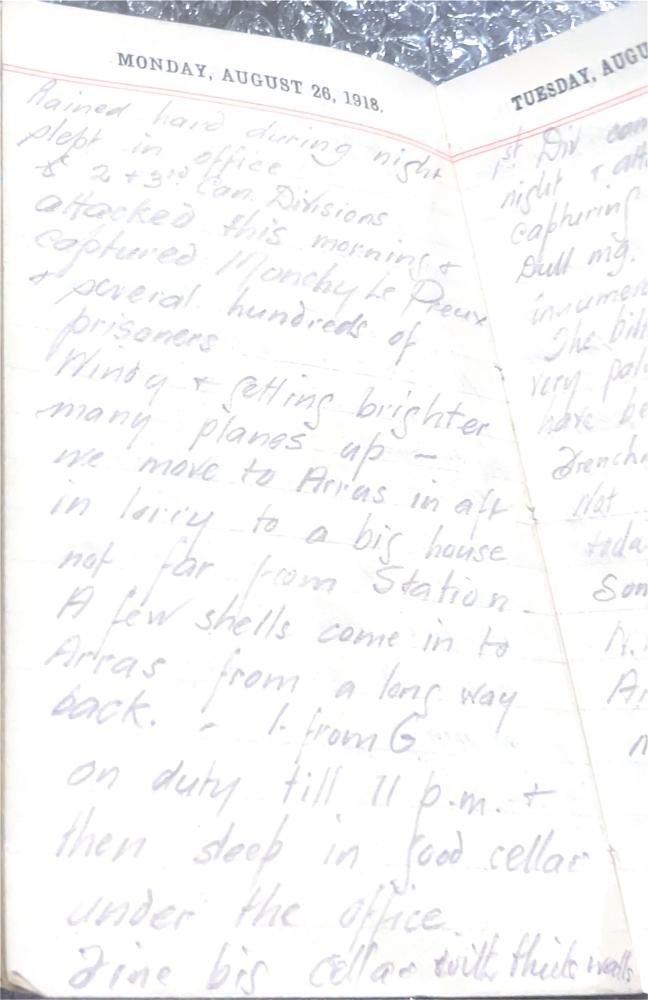 MONDAY, AUGUST 26, 1918.
Rained hard during night
slept in office
& 2 + 3rd Can. Divisions
attacked this morning +
captured Monchy Le Preux
+ several hundreds of
prisoners
Windy + getting brighter
many planes up –
we move to Arras in aft
in lorry to a big house
not far from Station
A few shells come in to
Arras from a long way
back. - 1. from G
on duty till 11 p.m. +
then sleep in good cellar
under the office.
Fine big cellar with thick walls
TUESDAY, AUGU
1st Div
night + att
capturing
Dull mg.
innumer
The
very
have be
Frenchm
Not
toda
Son
N.
Ar